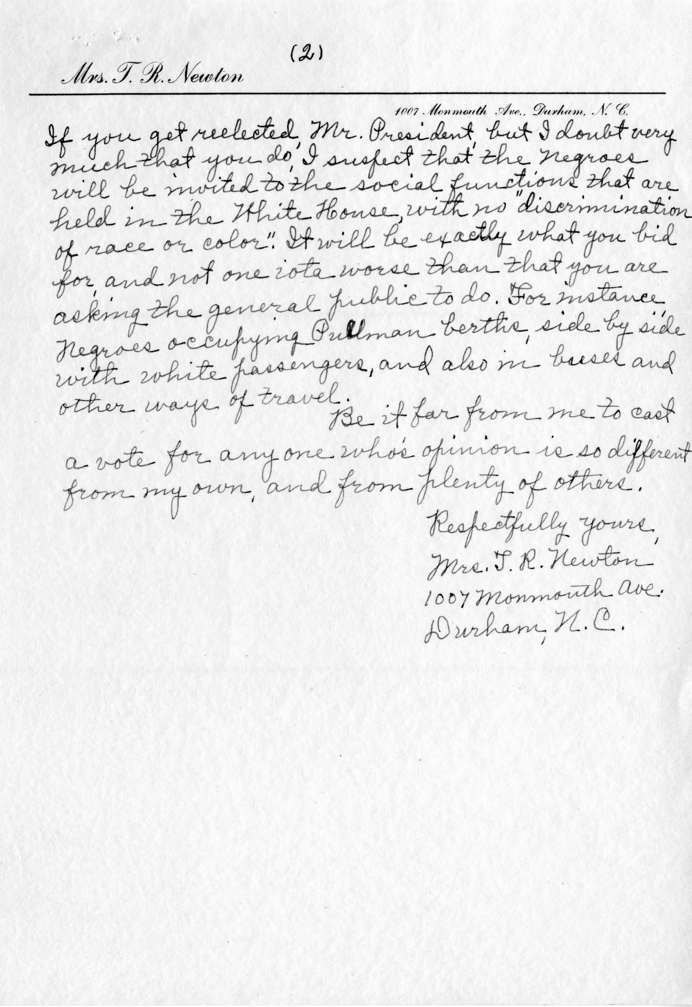 (2)
Mrs. T. R. Newton
1007 Monmouth Ave., Durham, N. C.
If you get reelected, Mr. President, but I doubt very
much that you do, I suspect that the Negroes
will be invited to the social functions that are
held in the White House, with no "discrimination
of race or color". It will be exactly what you bid
for, and not one iota worse than that you are
asking the general public to do. For instance,
Negroes occupying Pullman berths, side by side
with white passengers, and also in buses and
other ways of travel.
Be it far from me to cast
a vote for any one who's opinion is so different
from my own, and from plenty of others.
Respectfully yours,
Mrs. T. R. Newton
1007 Monmouth Ave.
Durham, N. C.